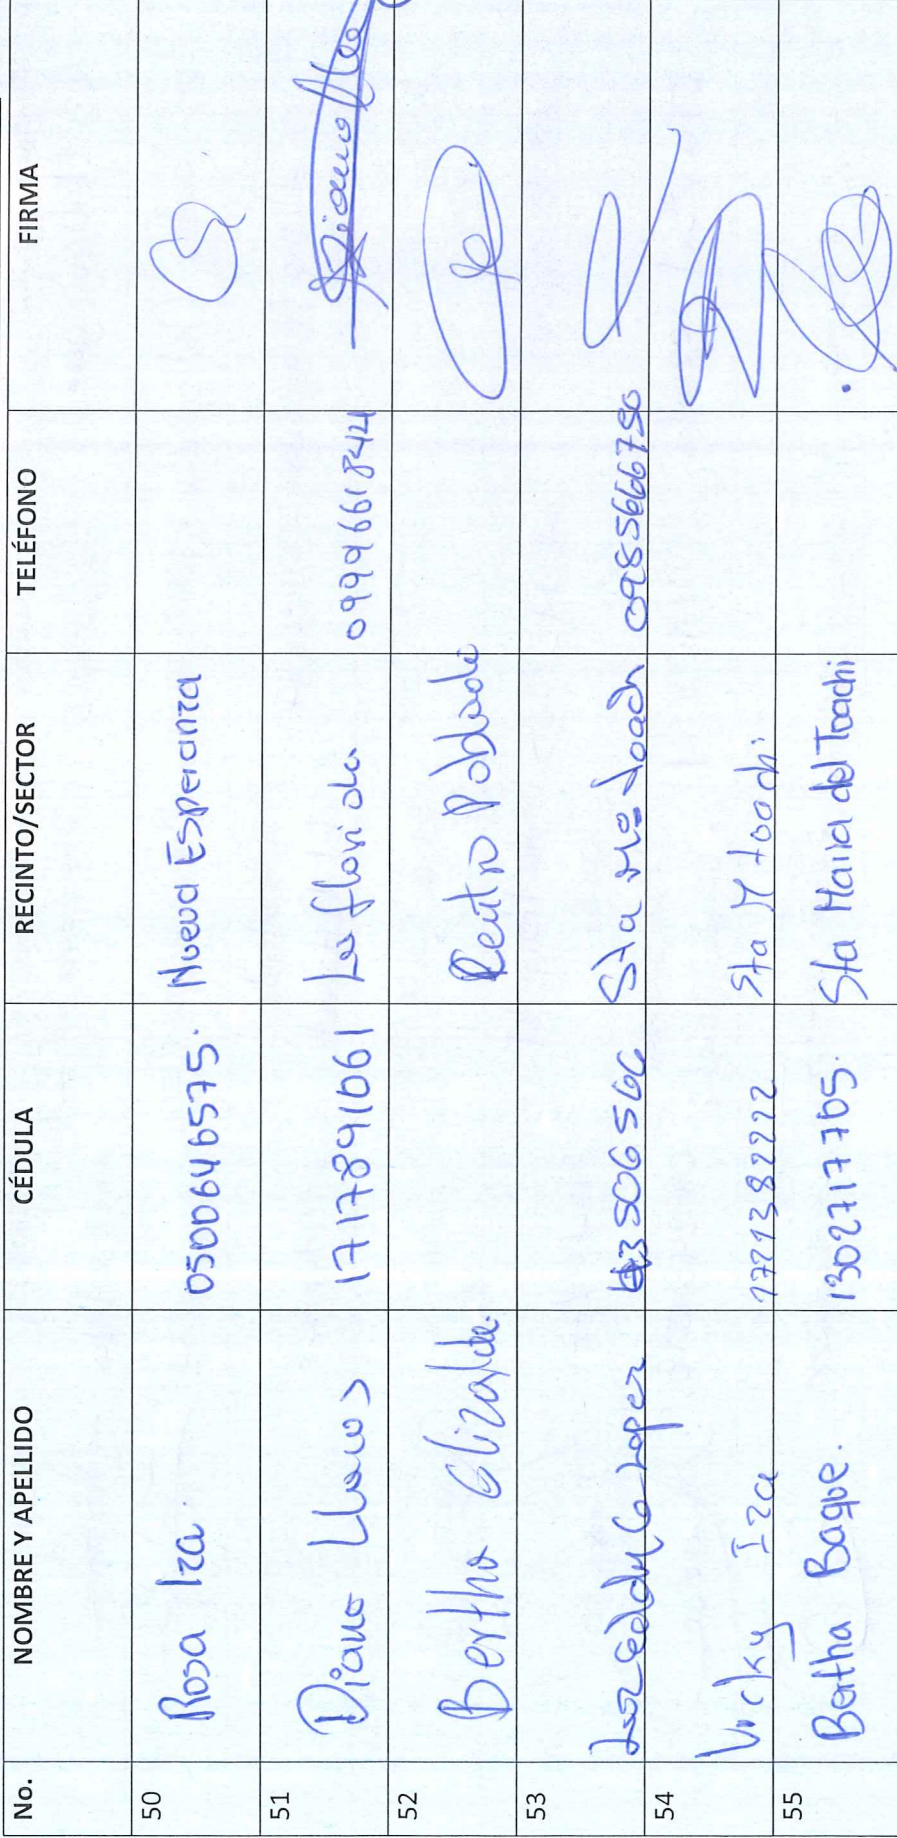 No. NOMBRE Y APELLIDO CÉDULA RECINTO/SECTOR TELÉFONO FIRMA
50 Rosa Iza. 0500646575. Nueva Esperanza
51 Diana Llanos 1717891061 La florida 0999661844
52 Bertha Elizalde. Centro Poblado
53 Lopez Sta Mª toachi 0985666750
54 Vicky Iza 1721382222 Sta M toachi
55 Bertha Baque. 1302717705. Sta Maria del Toachi